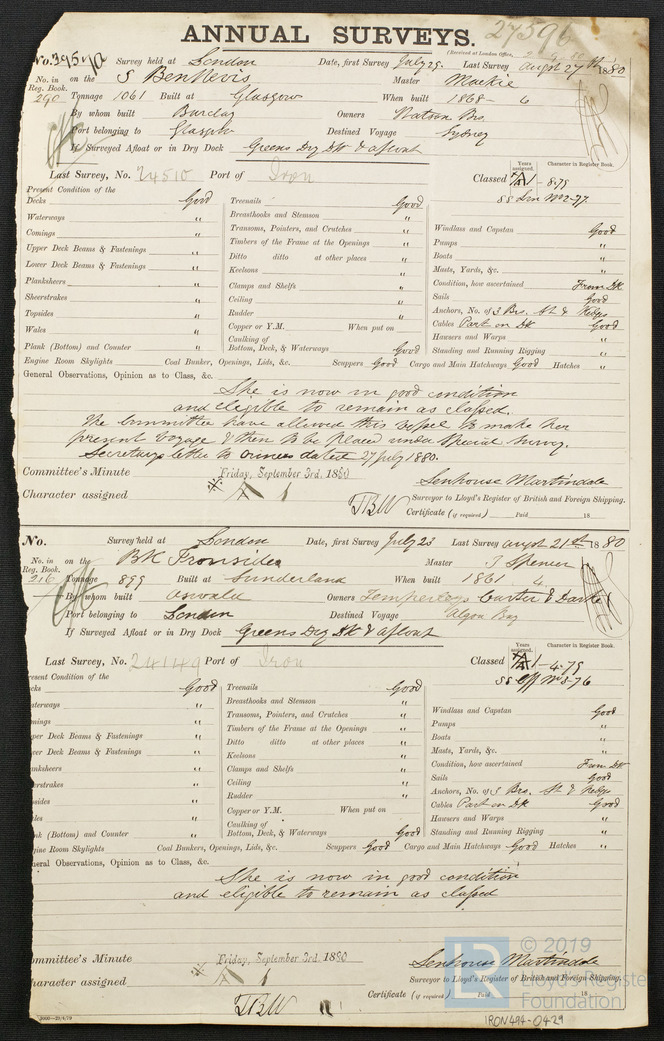 ANNUAL SURVEYS.
27596
(Received at London Office,
No. 39570 Survey held at London Date, first Survey July 29. Last Survey augst 27th 1880
No. in Reg. Book. on the S Ben Nevis Master Mackie
290 Tonnage 1061 Built at Glasgow When built 1868 - 6
By whom built Barclay Owners Watson Brs.
Port belonging to Glasgow Destined Voyage Sydney
If Surveyed Afloat or in Dry Dock Greens Dry Dk & afloat
Years assigned. Character in Register Book.
Last Survey, No. 24510 Port of Iron Classed A1 - 8.79
SS Lon No 2-77
Present Condition of the
Decks Good Treenails Good
Waterways " Breasthooks and Stemson " Windlass and Capstan Good
Comings " Transoms, Pointers, and Crutches " Pumps "
Upper Deck Beams & Fastenings " Timbers of the Frame at the Openings " Boats "
Lower Deck Beams & Fastenings " Ditto ditto at other places " Masts, Yards, &c. "
Planksheers " Keelsons " Condition, how ascertained From Dk
Sheerstrakes " Clamps and Shelfs " Sails Good
Topsides " Ceiling " Anchors, No. of 3 Brs. St & Kedges
Wales " Rudder " Cables Part on Dk Good
Plank (Bottom) and Counter " Copper or Y.M. When put on Hawsers and Warps "
Caulking of Bottom, Deck, & Waterways Good Standing and Running Rigging "
Engine Room Skylights Coal Bunker, Openings, Lids, &c. Scuppers Good Cargo and Main Hatchways Good Hatches "
General Observations, Opinion as to Class, &c.
She is now in good condition
and eligible to remain as classed.
The Committee have allowed this Vessel to make her
present Voyage & then to be placed under Special Survey.
Secretarys letter to Owners dated 27 July 1880.
Committee's Minute Friday, September 3rd. 1880
Senhouse Martindale
Character assigned A 1
TBW
Surveyor to Lloyd's Register of British and Foreign Shipping.
Certificate (if required) Paid 18
No. Survey held at London Date, first Survey July 23 Last Survey augst 21st 1880
No. in Reg. Book. on the BK Ironsides Master J Spencer
216 Tonnage 899 Built at Sunderland When built 1861 6
By whom built Oswald Owners Temperleys Carter & Darke
Port belonging to London Destined Voyage Algoa Bay
If Surveyed Afloat or in Dry Dock Greens Dry Dk & afloat
Years assigned. Character in Register Book.
Last Survey, No. 24149 Port of Iron Classed A1 - 4.79
Present Condition of the
Decks Good Treenails Good
Waterways " Breasthooks and Stemson " Windlass and Capstan Good
Comings " Transoms, Pointers, and Crutches " Pumps "
Upper Deck Beams & Fastenings " Timbers of the Frame at the Openings " Boats "
Lower Deck Beams & Fastenings " Ditto ditto at other places " Masts, Yards, &c. "
Planksheers " Keelsons " Condition, how ascertained From Dk
Sheerstrakes " Clamps and Shelfs " Sails Good
Topsides " Ceiling " Anchors, No. of 3 Brs. St & Kedges
Wales " Rudder " Cables Part on Dk Good
Plank (Bottom) and Counter " Copper or Y.M. When put on Hawsers and Warps "
Caulking of Bottom, Deck, & Waterways Good Standing and Running Rigging "
Engine Room Skylights Coal Bunkers, Openings, Lids, &c. Scuppers Good Cargo and Main Hatchways Good Hatches "
General Observations, Opinion as to Class, &c.
She is now in good condition
and eligible to remain as classed
Committee's Minute Friday, September 3rd. 1880
Senhouse Martindale
Character assigned A 1
TBW
Surveyor to Lloyd's Register of British and Foreign Shipping.
Certificate (if required) Paid 18
LR © 2019
Lloyd's Register
Foundation
IRON494-0429